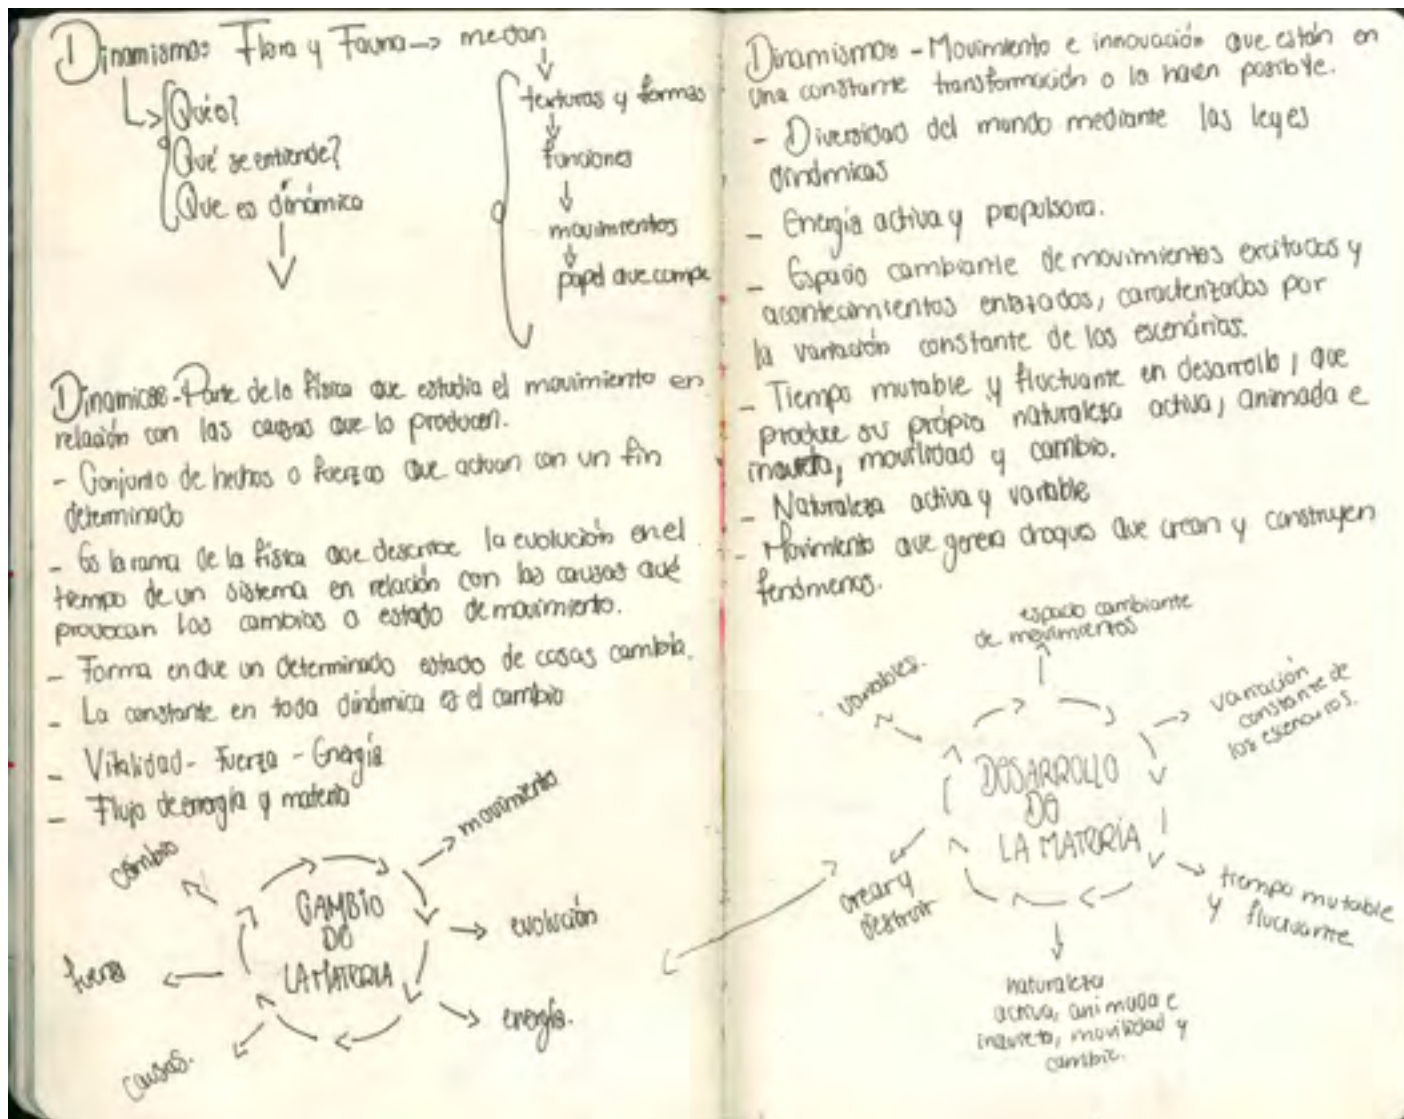 Dinamismo: Flora y Fauna →
↳ Qué es?
Qué se entiende?
Que es dinámico
↓
texturas y formas
↓
funciones
↓
movimientos
↓
papel que cumple
Dinamicas - Parte de la física que estudia el movimiento en
relación con las causas que lo producen.
- Conjunto de hechos o fuerzas que actuan con un fin
determinado
- Es la rama de la física que describe la evolución en el
tiempo de un sistema en relación con las causas qué
provocan los cambios o estado de movimiento.
- Forma en que un determinado estado de cosas cambia.
- La constante en toda dinámica es el cambio
- Vitalidad - Fuerza - Energía
- Flujo de energía y materia
CAMBIO
DE
LA MATERIA
movimiento
evolución
energía.
causas.
fuerza
cambio
Dinamismos - Movimiento e innovación que están en
una constante transformación o lo hacen posible.
- Diversidad del mundo mediante las leyes
dinámicas
- Energía activa y propulsora.
- Espacio cambiante de movimientos excitados y
acontecimientos enlazados, caracterizados por
la variación constante de los escenários.
- Tiempo mutable y fluctuante en desarrollo, que
produce su própia naturaleza activa, animada e
inquieta, movilidad y cambio.
- Naturaleza activa y variable
- Movimiento que genera choques que crean y construyen
fenómenos.
DESARROLLO
DE
LA MATERIA
espacio cambiante
de movimientos
variación
constante de
los escenarios.
tiempo mutable
y fluctuante
naturaleza
activa, animada e
inquieta, movilidad y
cambio.
crear y
destruir
variables.